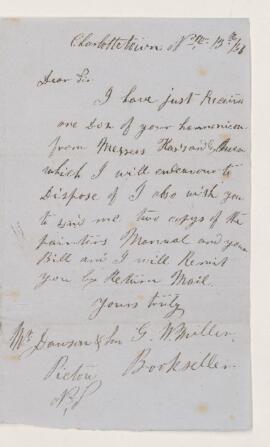 Charlottetown 13th/68
Dear Sir
I have just Received
one Box of your
from Messers
which I will endeavour to
Dispose of I also wish you
to send me two copys of the
painters Manual and your
Bill and I will Remit
you by Return Mail.
Yours truly
Mr Dawson & Son G. W. Millner
Pictou Bookseller
N.S